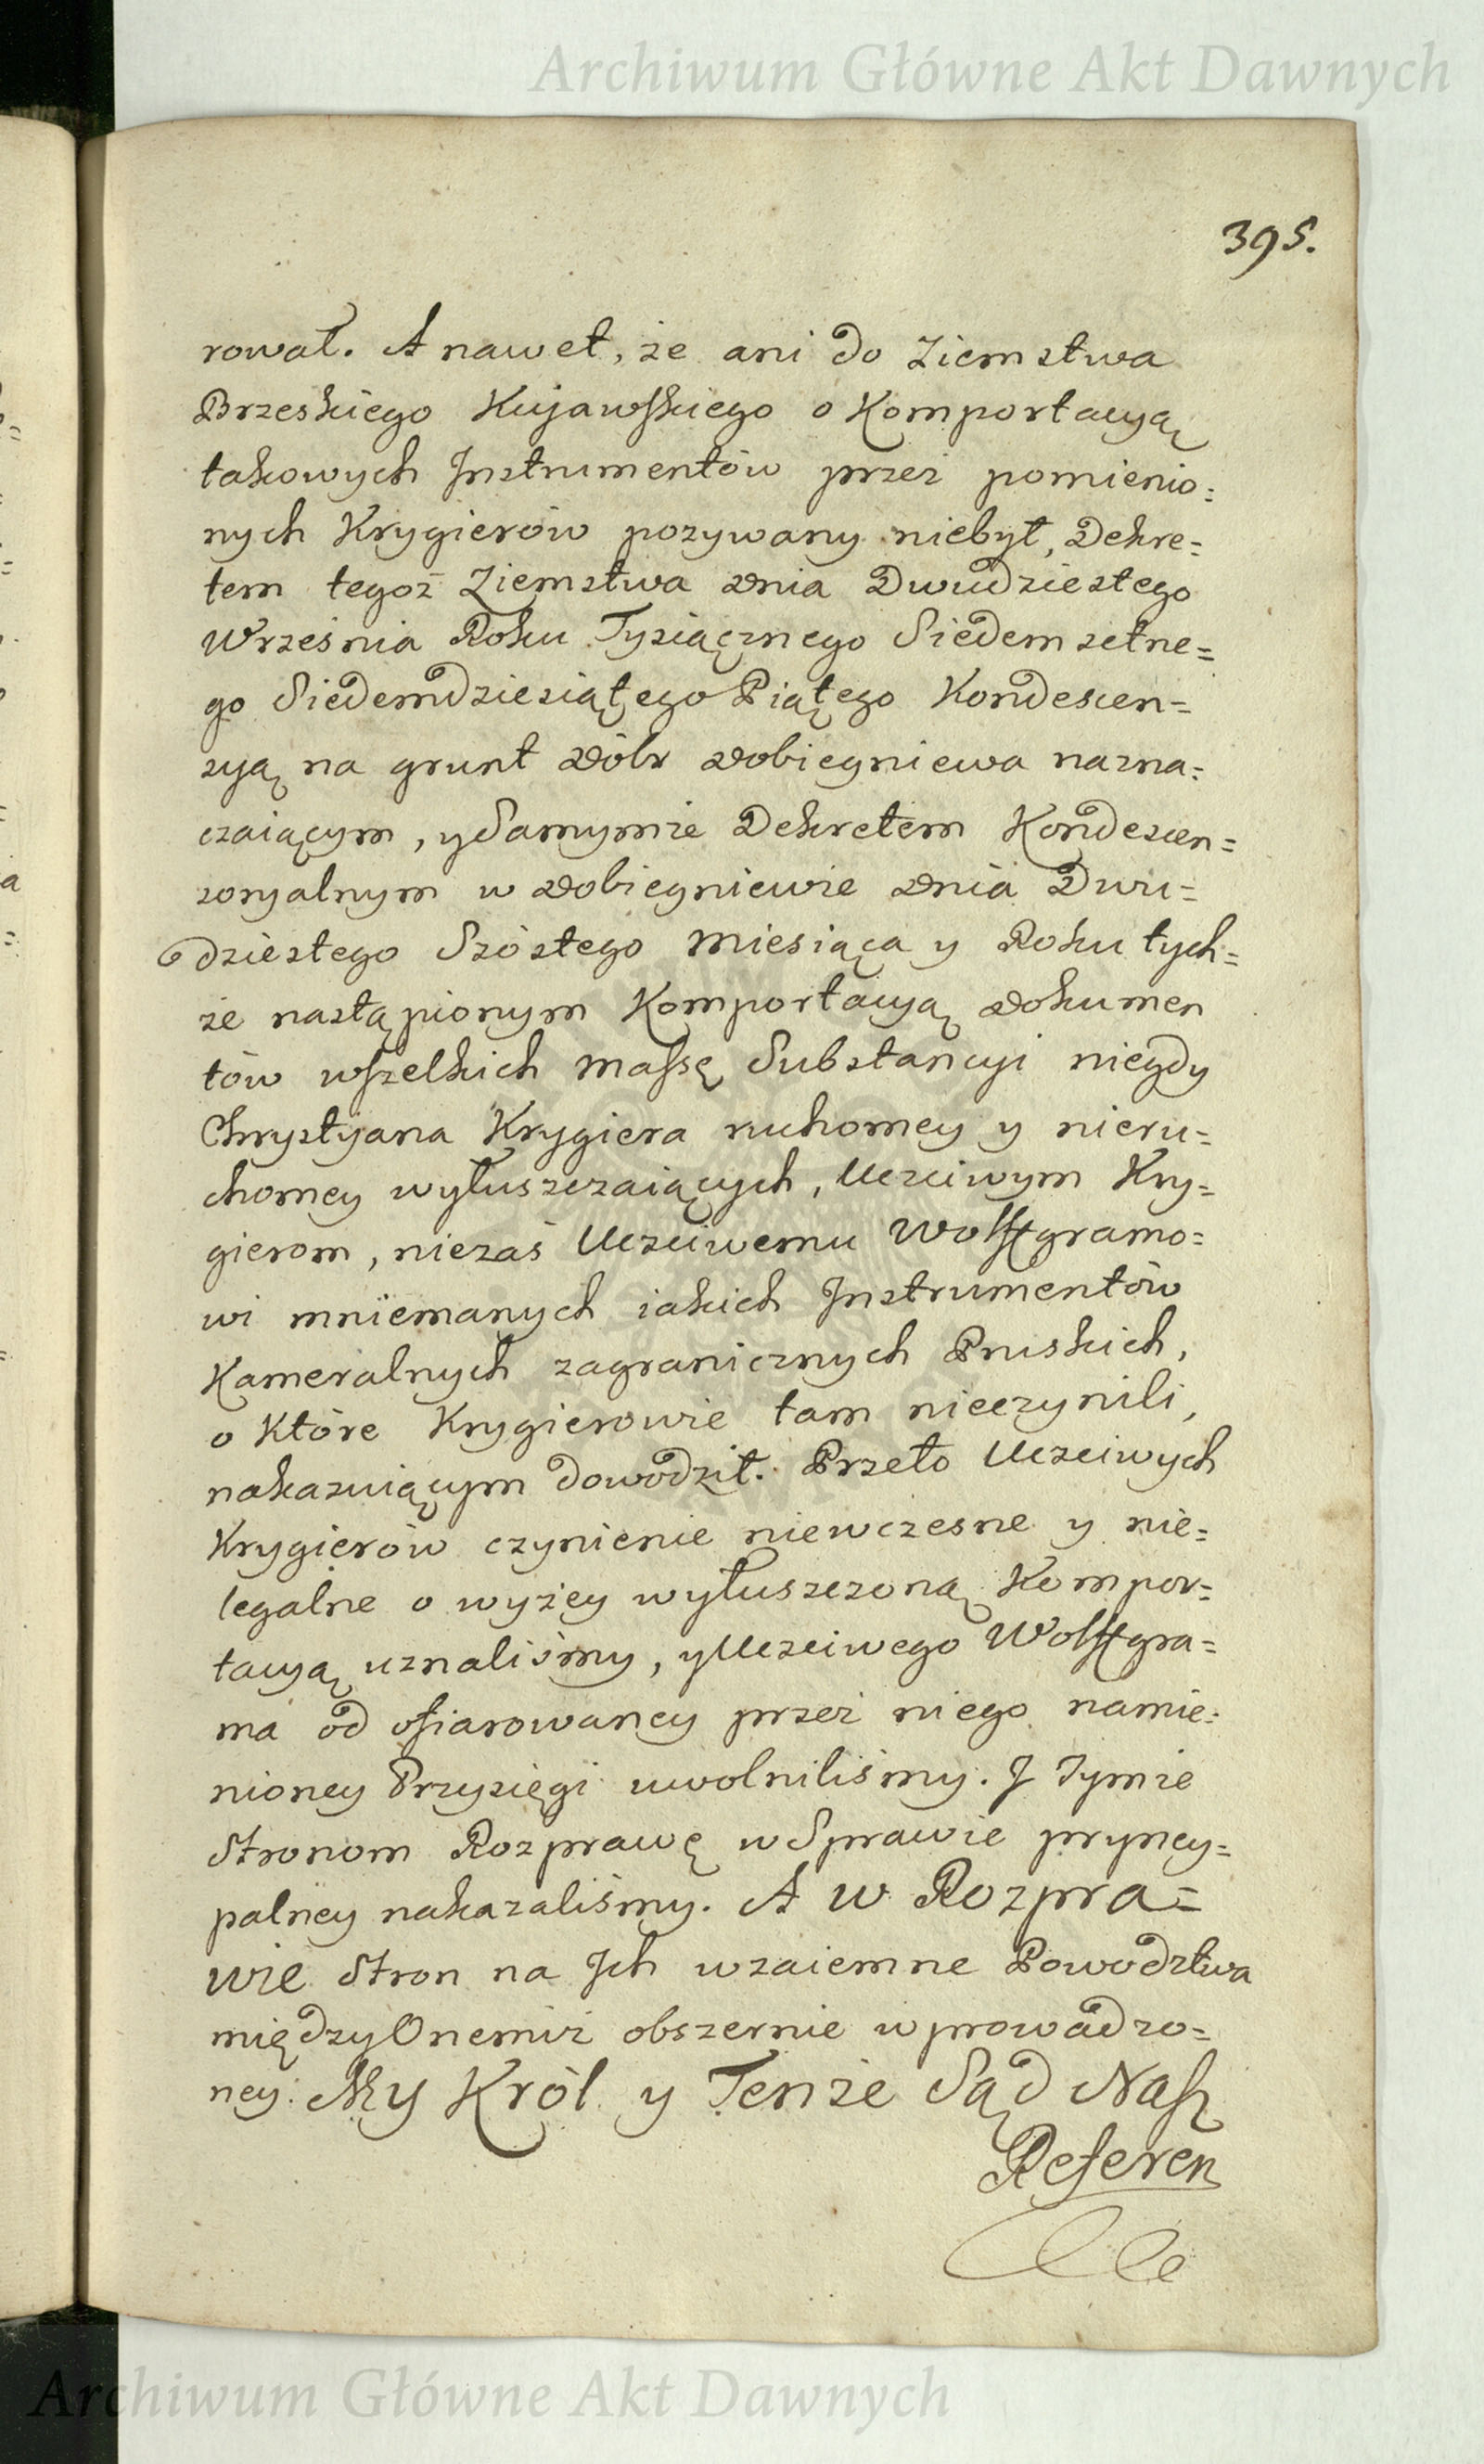 Archiwum Główne Akt Dawnych
395.
rował. A nawet, że ani do Ziemstwa
Brzeskiego Kujawskiego o Komportacyą
takowych Instrumentów przez pomienio=
nych Krygierów pozywany niebył, Dekre=
tem tegoż Ziemstwa dnia Dwudziestego
Września Roku Tysiącznego Siedemsetne=
go Siedemdziesiątego Piątego Kondescen=
syą na grunt dóbr Dobiegniewa nazna=
czaiącym, y Samymże Dekretem Kondescen=
soryalnym w Dobiegniewie dnia Dwu=
dziestego Szóstego Miesiąca y Roku tych=
że nastąpionym Komportacyą dokumen
tów wszelkich Massę Substancyi niegdy
Chrystyana Krygiera ruchomey y nieru=
chomey wyłuszczaiących, Uczciwym Kry=
gierom, niezaś Uczciwemu Wolffgramo=
wi mniemanych iakich Instrumentów
Kameralnych zagranicznych Pruskich,
o które Krygierowie tam nieczynili,
nakazuiącym dowodził. Przeto Uczciwych
Krygierów czynienie niewczesne y nie=
legalne o wyżey wyłuszczoną Kompor=
tacyą uznaliśmy, y Uczciwego Wolffgra=
ma od ofiarowaney przez niego namie=
nioney Przysięgi uwolniliśmy. I Tymże
Stronom Rozprawę w Sprawie pryncy=
palney nakazaliśmy. A w Rozpra=
wie Stron na Ich wzaiemne Powodztwa
między Onemiż obszernie wprowadzo=
ney. My Król y Tenże Sąd Nasz
Referen
Archiwum Główne Akt Dawnych